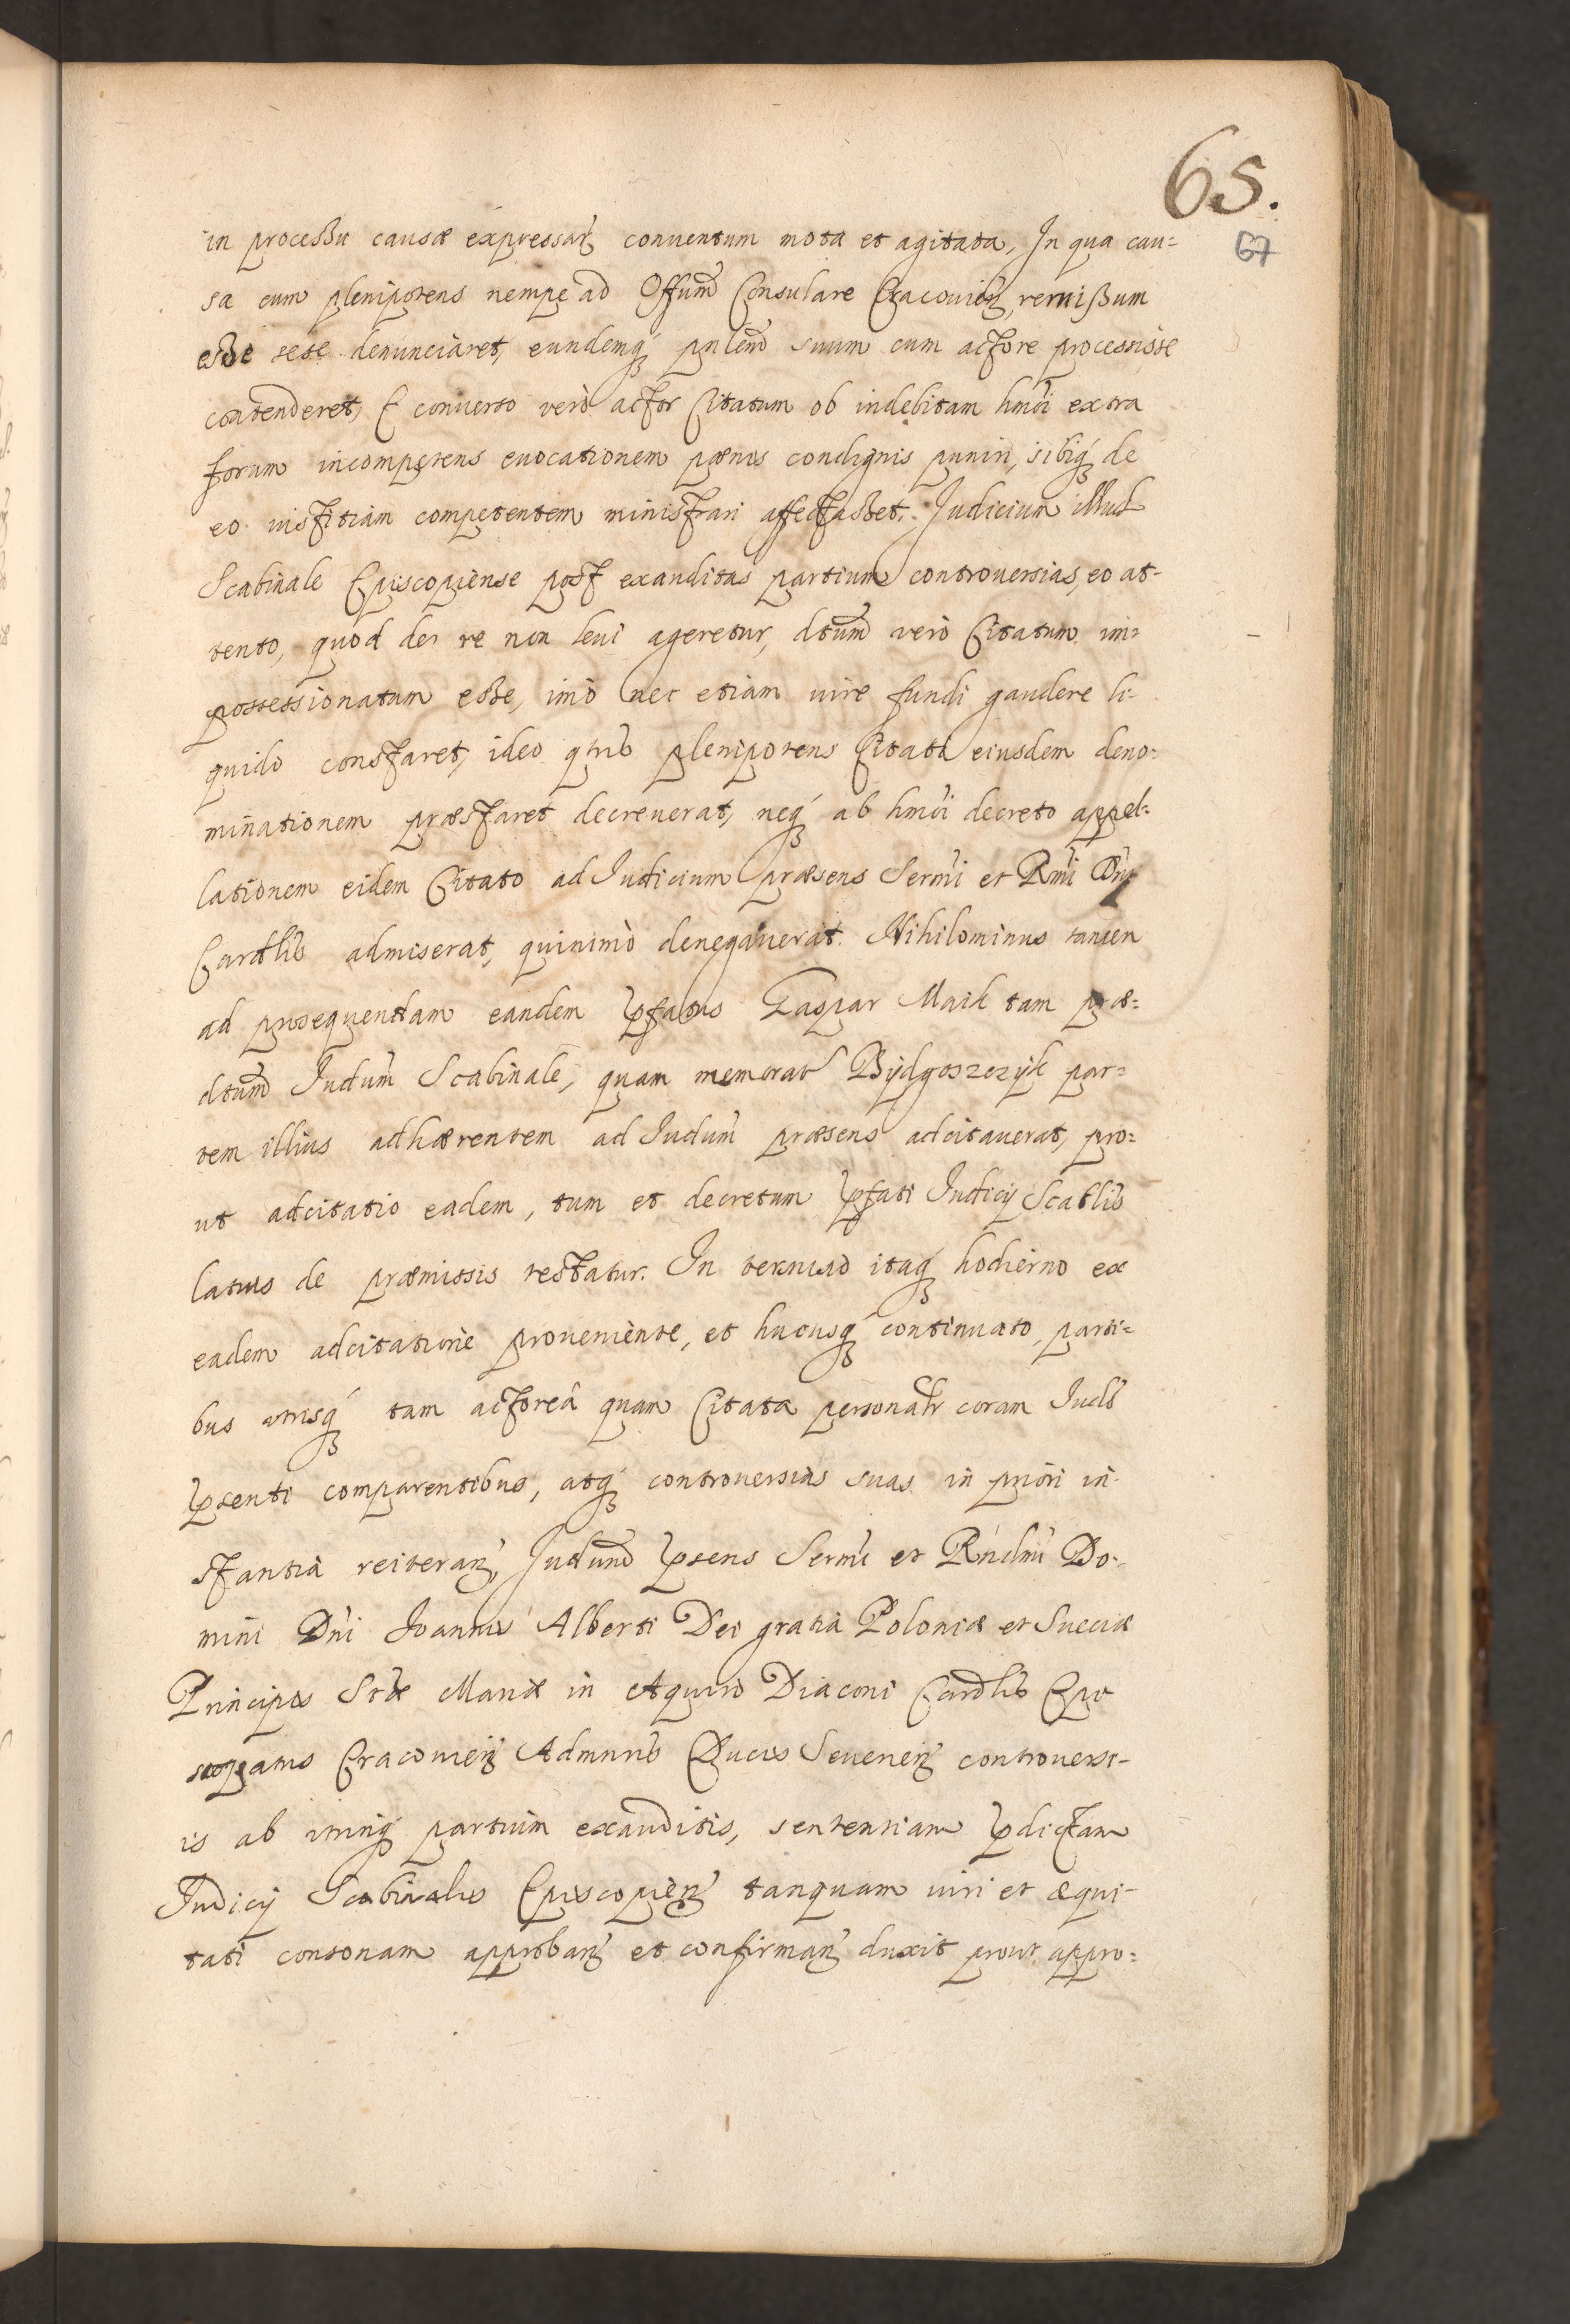 65.
67
in processu causæ expressar̃ conuentum mota et agitata, In qua cau=
sa eum plenipotens nempe ad Offum̃ Consulare Cracouień, remissum
esse sese denunciaret, eundemq́ȝ suum cum actore processisse
contenderet, E conuerso verò actor Citatum ob indebitam hmõi extra
forum incompetens euocationem pœnis condignis puniri, sibiq́ȝ de
eo iustitiam competentem ministrari affectasset. Judicium illud
Scabinale Episcopiense post exauditas partium controuersias, eo at-
tento, quod de re non leui ageretur, dtum̃ verò Citatum im=
possessionatum esse, imò nec etiam iure fundi gaudere li-
quido constaret, ideo plenipotens Citati eiusdem deno=
minationem præstaret decreuerat, neq́ȝ ab hmõi decreto appel=
lationem eidem Citato ad Iudicium præsens Sermi et Rmi Dni
Cardlis admiserat, quinimò denegauerat. Nihilominus tamen
ad prosequendam eandem pfatus Gaspar Maik tam præ=
dtum̃ Iudum̃ Scabinale, quam memorat Bydgoszczyk par=
tem illius adhærentem ad Iudum̃ præsens adcitauerat, pro=
ut adcitatio eadem, tum et decretum pfati Iudicij Scablis
latius de præmissis testatur. In termino itaq́ȝ hodierno ex
eadem adcitatione proueniente, et hucusq́ȝ continuato, parti=
bus utrisq́ȝ tam actoreâ quam Citata personalr coram Iudo
psenti comparentibus, atq́ȝ controuersias suas in priori in-
stantia reiteran̄, Judum̃ psens Sermi et Rndmi Do-
mini Dni Ioannis Alberti Dei gratia Poloniæ et Sueciæ
Principis Stæ Mariæ in Aquiro Diaconi Cardlis Epi
scopatus Cracouień Admnris Ducis Seuerień controuersi-
is ab utrinq́ȝ partium exauditis, sententiam pdictam
Iudicij Scabinalis Episcopień tanquam iuri et æqui-
tati consonam approban̄ et confirman̄ duxit prout appro=